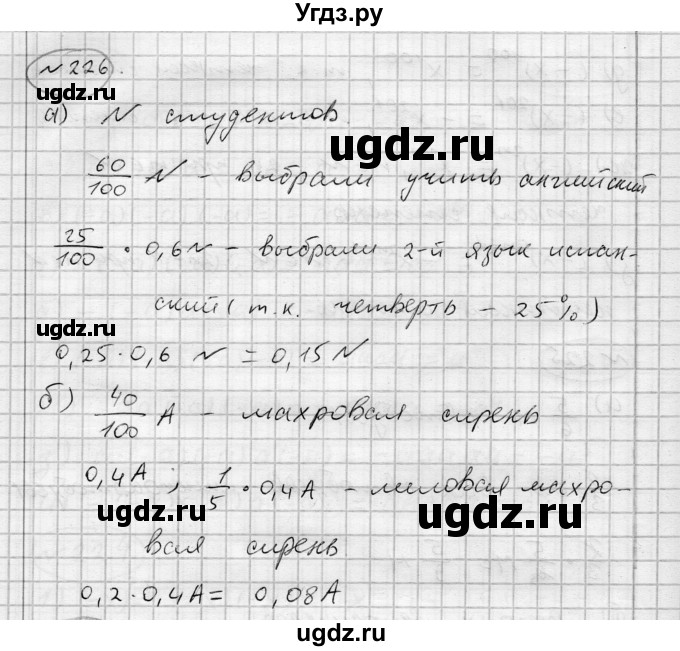 Угдз.ру
№ 226.
ugdz.ru
а) N студентов.
ugdz.ru
60/100 N – выбрали учить английский
25/100 · 0,6N – выбрали 2-й язык испан-
ugdz.ru
ский ( т.к. четверть – 25%)
ugdz.ru
0,25·0,6 N = 0,15N
ugdz.ru
б) 40/100 А – махровая сирень
ugdz.ru
0,4А ; 1/5 · 0,4А – лиловая махро-
ugdz.ru ugdz.ru
вая сирень
0,2·0,4А = 0,08А
ugdz.ru